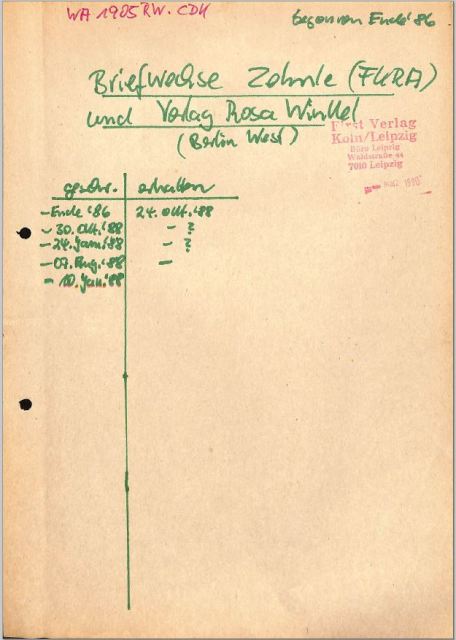 WA 1985 RW. CDU
begonnen Ende '86
Briefwechse Zehnle (FURA)
und Verlag Rosa Winkel
(Berlin West)
First Verlag
Köln/Leipzig
Büro Leipzig
Waldstraße 44
7010 Leipzig
März 1990
geschr. erhalten
- Ende '86 24. Okt. '88
- 30. Okt. '88 - ?
- 24. Jan. '88 - ?
- 07. Aug. '88 -
- 10. Jan. '88